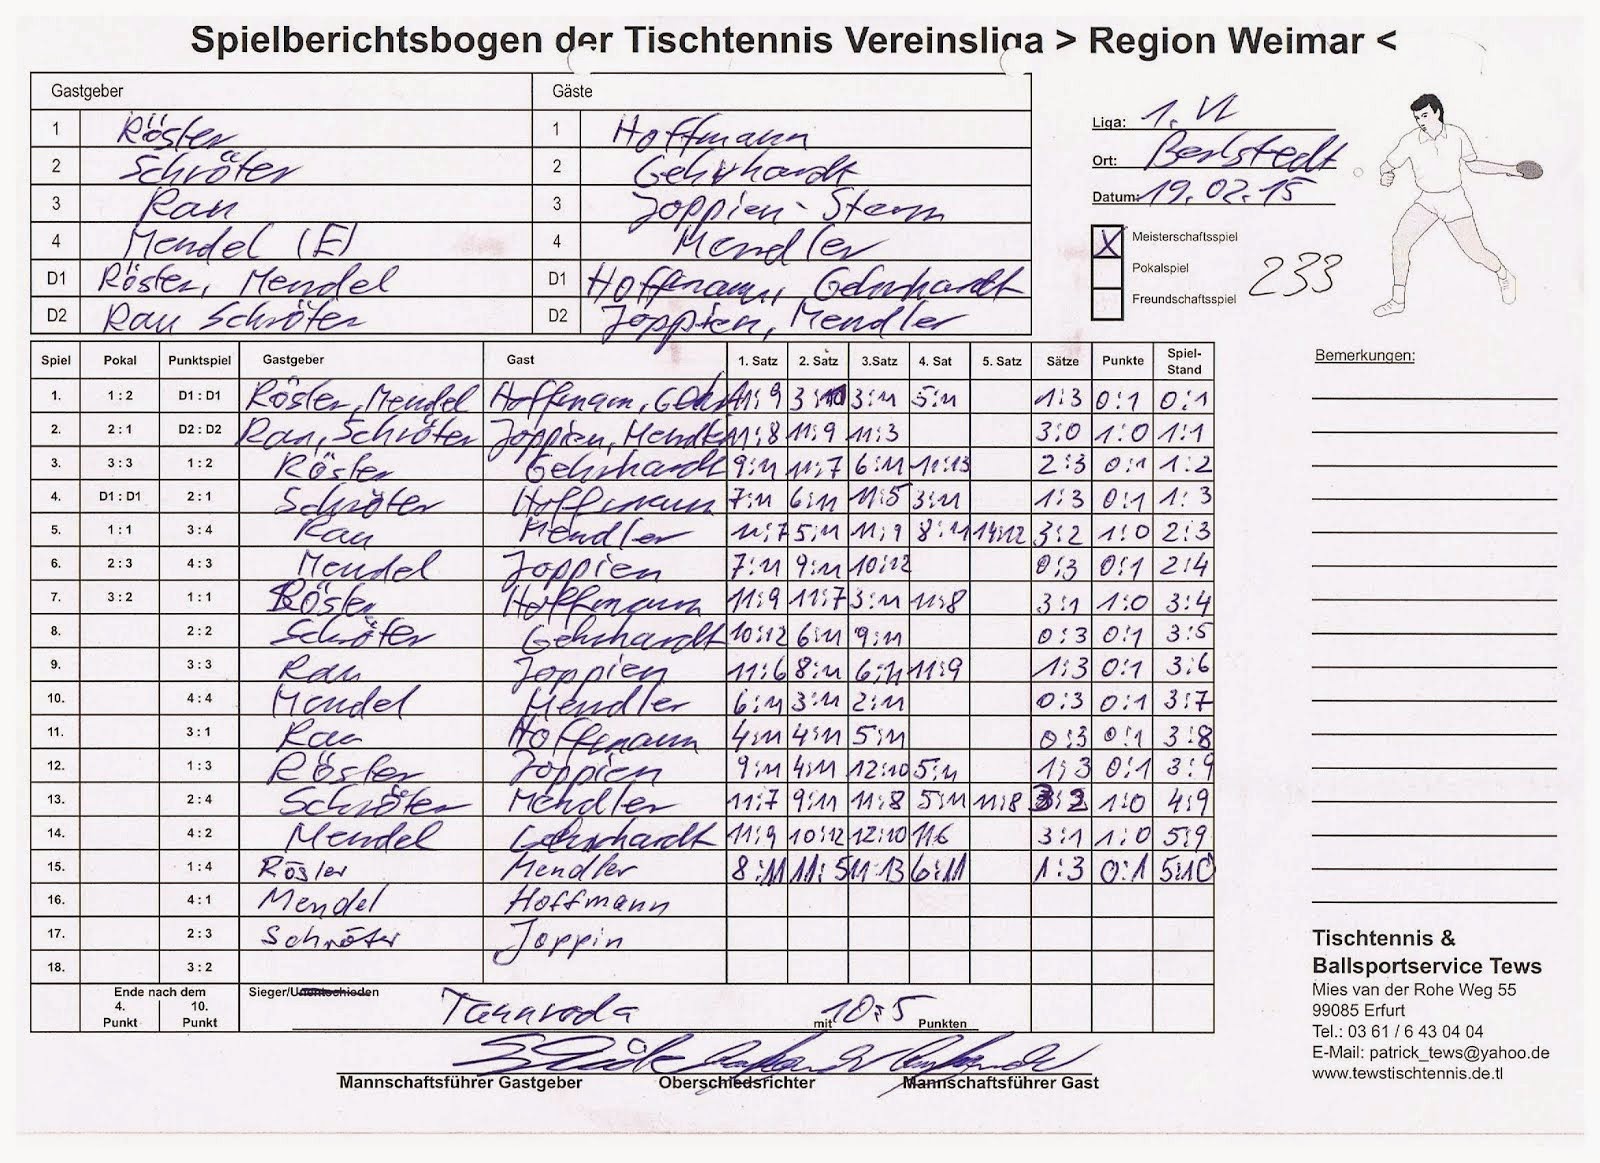 Spielberichtsbogen der Tischtennis Vereinsliga > Region Weimar <
Gastgeber Gäste
1 Rösler 1 Hoffmann
2 Schröter 2 Gehrhardt
3 Rau 3 Joppien-Sterm
4 Mendel (E) 4 Mendler
D1 Rösler, Mendel D1 Hoffmann, Gehrhardt
D2 Rau Schröter D2 Joppien, Mendler
Liga: 1. VL
Ort: Berlstedt
Datum: 19.02.15
X Meisterschaftsspiel
Pokalspiel
Freundschaftsspiel
233
Bemerkungen:
Spiel Pokal Punktspiel Gastgeber Gast 1. Satz 2. Satz 3.Satz 4. Sat 5. Satz Sätze Punkte Spiel-Stand
1. 1 : 2 D1 : D1 Rösler, Mendel Hoffmann, Gehrh 11:9 3:11 3:11 5:11 1:3 0:1 0:1
2. 2 : 1 D2 : D2 Rau, Schröter Joppien, Mendler 11:8 11:9 11:3 3:0 1:0 1:1
3. 3 : 3 1 : 2 Rösler Gehrhardt 9:11 11:7 6:11 11:13 2:3 0:1 1:2
4. D1 : D1 2 : 1 Schröter Hoffmann 7:11 6:11 11:5 3:11 1:3 0:1 1:3
5. 1 : 1 3 : 4 Rau Mendler 11:7 5:11 11:9 8:11 14:12 3:2 1:0 2:3
6. 2 : 3 4 : 3 Mendel Joppien 7:11 9:11 10:12 0:3 0:1 2:4
7. 3 : 2 1 : 1 Rösler Hoffmann 11:9 11:7 3:11 11:8 3:1 1:0 3:4
8. 2 : 2 Schröter Gehrhardt 10:12 6:11 9:11 0:3 0:1 3:5
9. 3 : 3 Rau Joppien 11:6 8:11 6:11 11:9 1:3 0:1 3:6
10. 4 : 4 Mendel Mendler 6:11 3:11 2:11 0:3 0:1 3:7
11. 3 : 1 Rau Hoffmann 4:11 4:11 5:11 0:3 0:1 3:8
12. 1 : 3 Rösler Joppien 9:11 4:11 12:10 5:11 1:3 0:1 3:9
13. 2 : 4 Schröter Mendler 11:7 9:11 11:8 5:11 11:8 3:2 1:0 4:9
14. 4 : 2 Mendel Gehrhardt 11:9 10:12 12:10 11:6 3:1 1:0 5:9
15. 1 : 4 Rösler Mendler 8:11 11:5 11-13 6:11 1:3 0:1 5:10
16. 4 : 1 Mendel Hoffmann
17. 2 : 3 Schröter Joppin
18. 3 : 2
Ende nach dem
4. 10.
Punkt Punkt
Sieger/Unentschieden Tannroda mit 10:5 Punkten
Mannschaftsführer Gastgeber Oberschiedsrichter Mannschaftsführer Gast
Tischtennis &
Ballsportservice Tews
Mies van der Rohe Weg 55
99085 Erfurt
Tel.: 03 61 / 6 43 04 04
E-Mail: patrick_tews@yahoo.de
www.tewstischtennis.de.tl